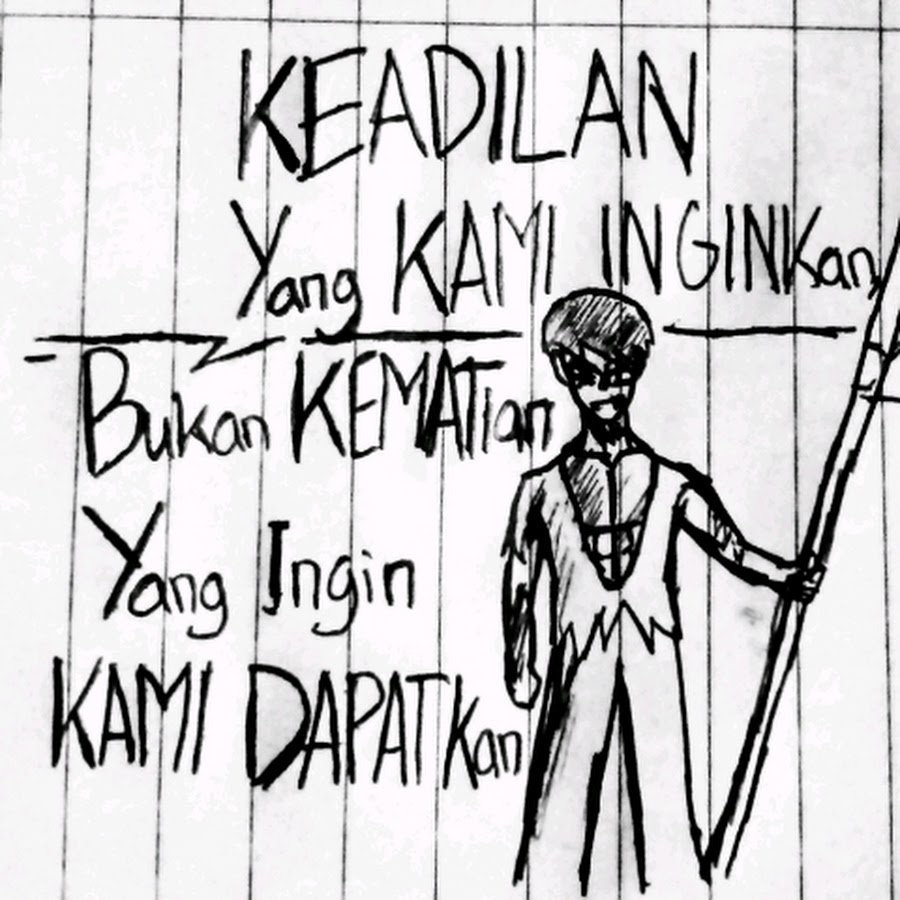 KEADILAN
Yang KAMI INGINKan
Bukan KEMATian
Yang Ingin
KAMI DAPATKan